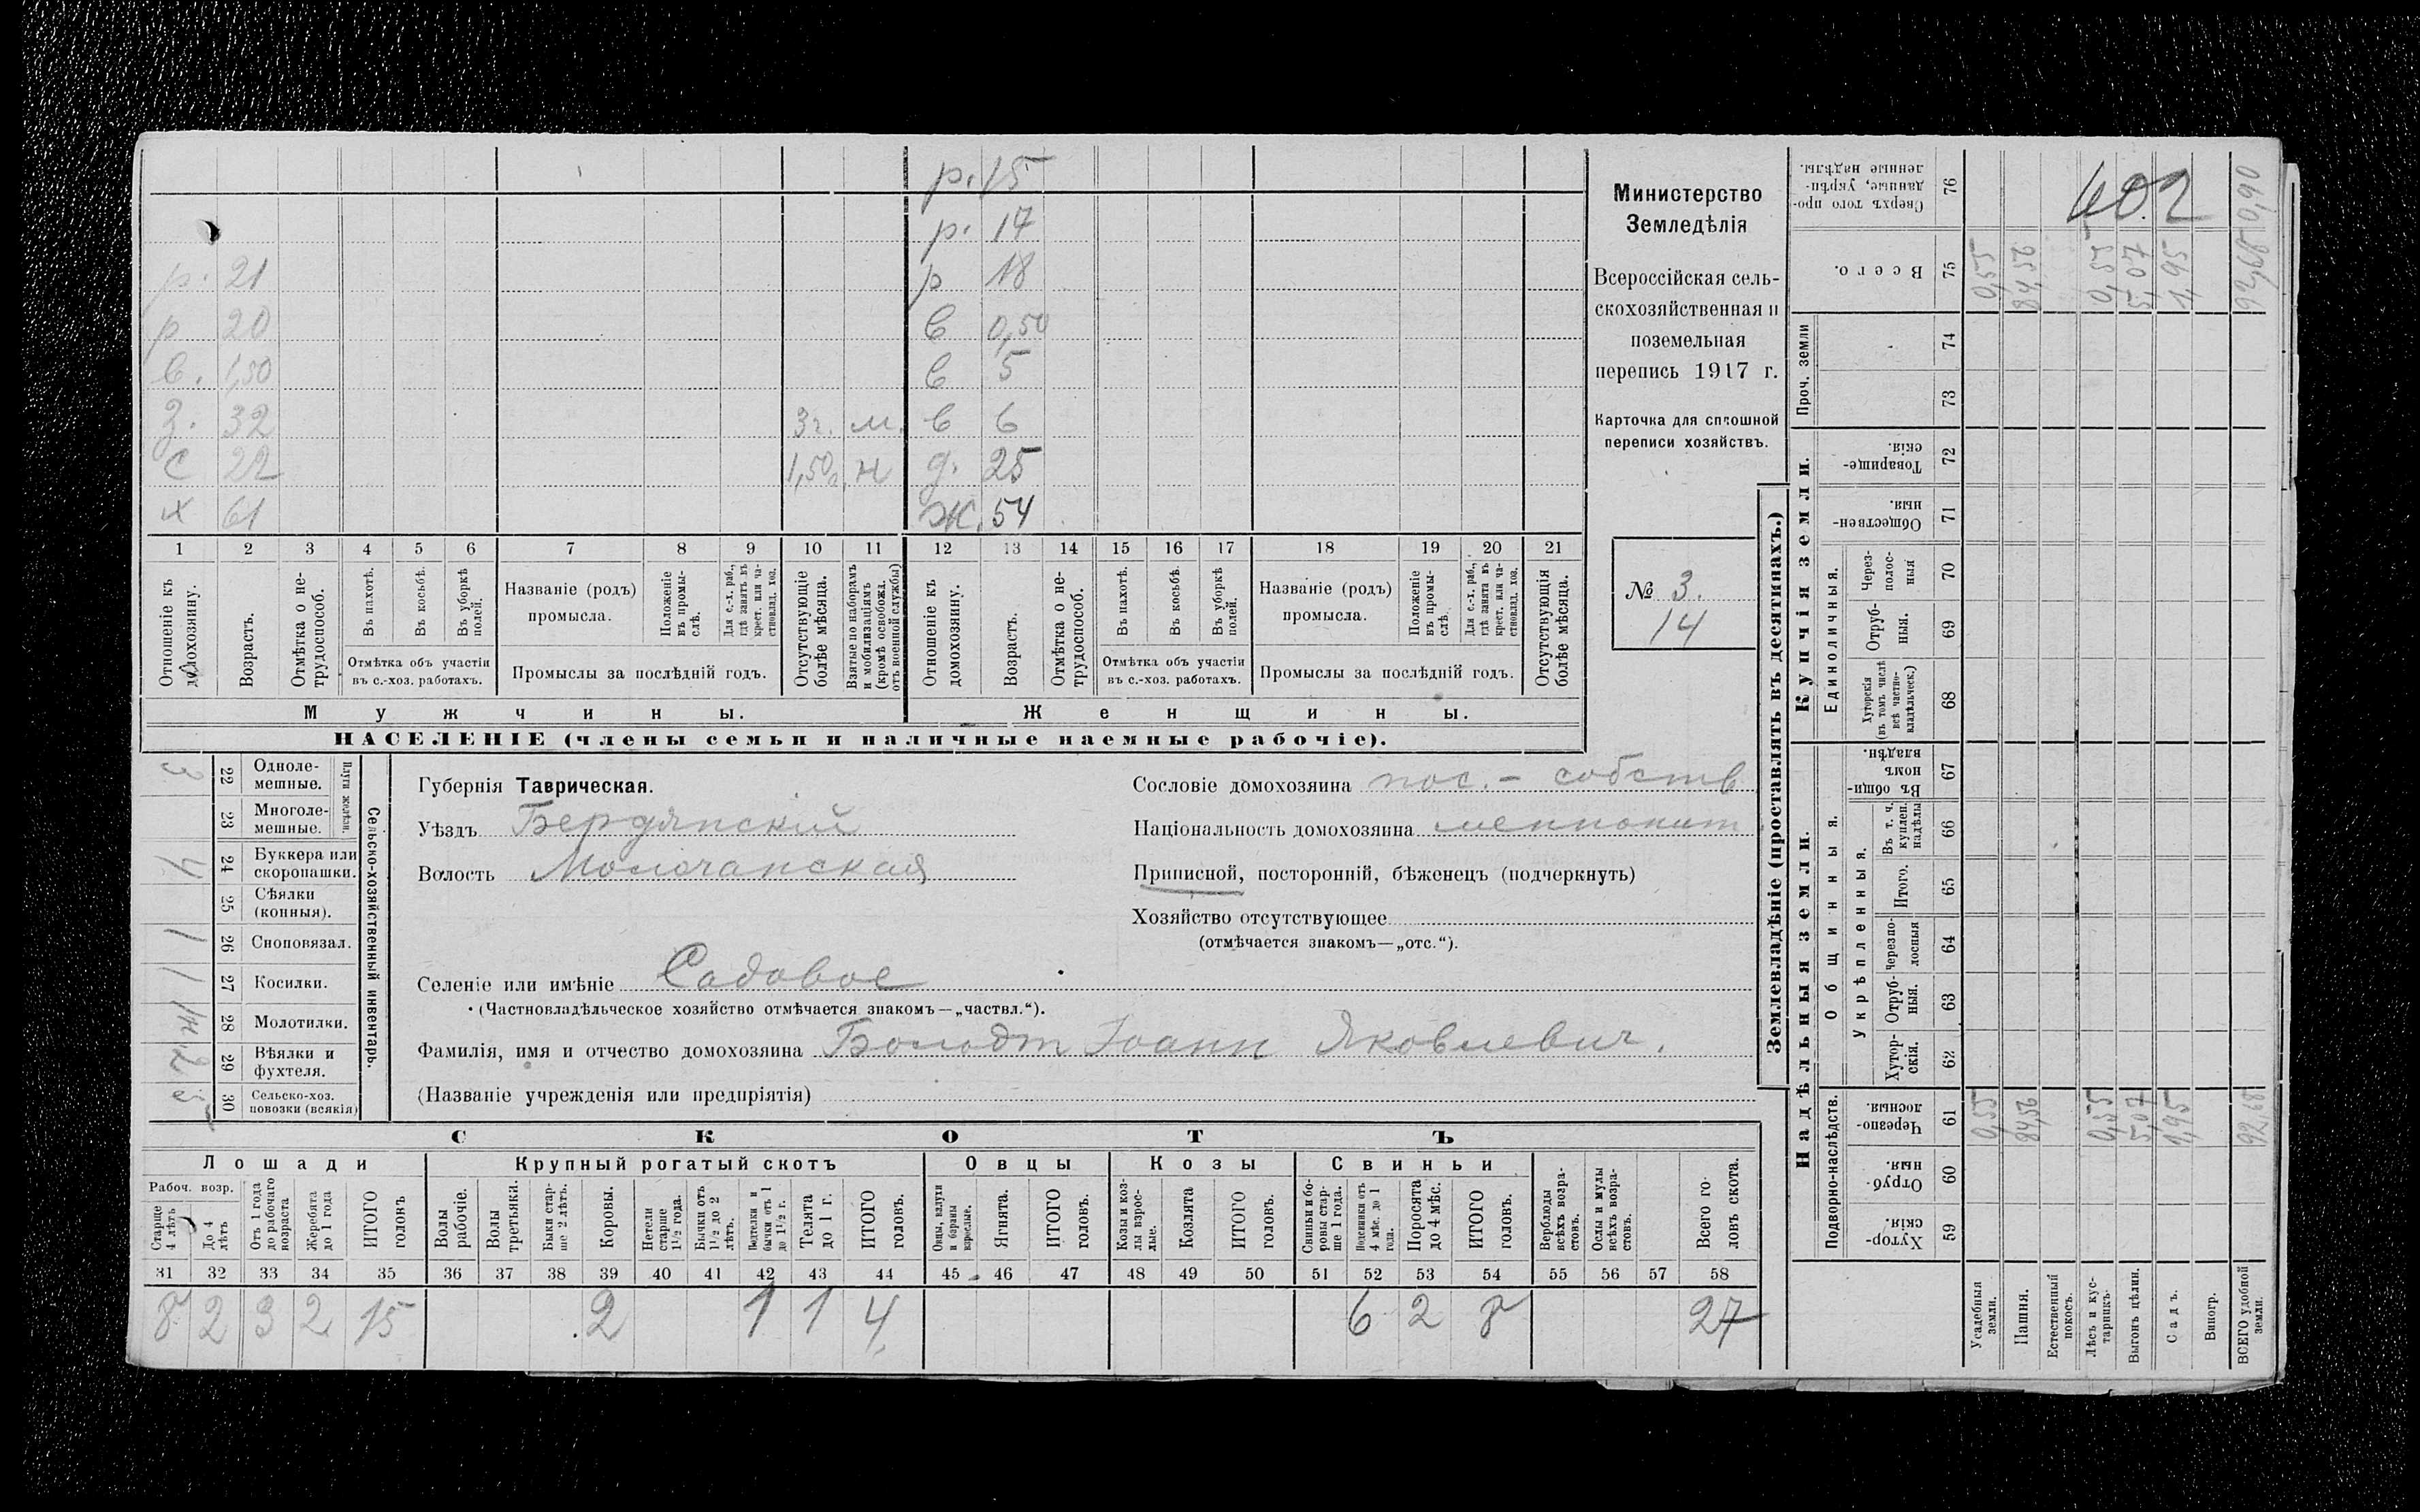 р. 15
р. 17
р. 21 р 18
р 20 в 0,50
в. 1,50 в 5
з. 32 3 г. м. в 6
с 22 1,50 г. н д. 25
х 61 ж. 54
1 2 3 4 5 6 7 8 9 10 11 12 13 14 15 16 17 18 19 20 21
Отношеніе къ домохозяину.
Возрастъ.
Отмѣтка о нетрудоспособ.
Въ пахотѣ.
Въ косьбѣ.
Въ уборкѣ полей.
Отмѣтка объ участіи въ с.-хоз. работахъ.
Названіе (родъ) промысла.
Положеніе въ промыслѣ.
Для с.-х. раб., гдѣ занятъ въ крест. или частновлад. хоз.
Промыслы за послѣдній годъ.
Отсутствующіе болѣе мѣсяца.
Взятые по наборамъ и мобилизаціямъ (кромѣ освобожд. отъ военной службы)
Отношеніе къ домохозяину.
Возрастъ.
Отмѣтка о нетрудоспособ.
Въ пахотѣ.
Въ косьбѣ.
Въ уборкѣ полей.
Отмѣтка объ участіи въ с.-хоз. работахъ.
Названіе (родъ) промысла.
Положеніе въ промыслѣ.
Для с.-х. раб., гдѣ занята въ крест. или частновлад. хоз.
Промыслы за послѣдній годъ.
Отсутствующія болѣе мѣсяца.
Мужчины. Женщины.
НАСЕЛЕНІЕ (члены семьи и наличные наемные рабочіе).
Министерство
Земледѣлія
Всероссійская сель-
скохозяйственная и
поземельная
перепись 1917 г.
Карточка для сплошной
переписи хозяйствъ.
№ 3.
14
Сельско-хозяйственный инвентарь.
Плуги желѣзн.
22 Одноле-мешные. 3
23 Многоле-мешные.
24 Буккера или скоропашки. 4
25 Сѣялки (конныя).
26 Сноповязал. 1
27 Косилки. 1
28 Молотилки.
29 Вѣялки и фухтеля. 2
30 Сельско-хоз. повозки (всякія) 5
Губернія Таврическая.
Уѣздъ Бердянскій
Волость Молочанская
Селеніе или имѣніе Садовое
(Частновладѣльческое хозяйство отмѣчается знакомъ—„частвл.“).
Фамилія, имя и отчество домохозяина Болодт Іоанн Яковлевич.
(Названіе учрежденія или предпріятія)
Сословіе домохозяина пос. - собств
Національность домохозяина меннонит
Приписной, посторонній, бѣженецъ (подчеркнуть)
Хозяйство отсутствующее
(отмѣчается знакомъ—„отс.“).
СКОТЪ
Лошади Крупный рогатый скотъ Овцы Козы Свиньи
Рабоч. возр.
Старше 4 лѣтъ
До 4 лѣтъ
Отъ 1 года до рабочаго возраста
Жеребята до 1 года
ИТОГО головъ
Волы рабочіе.
Волы третьяки.
Быки старше 2 лѣтъ.
Коровы.
Нетели старше 1½ года.
Бычки отъ 1½ до 2 лѣтъ.
Подтелки и бычки отъ 1 до 1½ г.
Телята до 1 г.
ИТОГО головъ.
Овцы, валухи и бараны взрослые.
Ягнята.
ИТОГО головъ.
Козы и козлы взрослые.
Козлята
ИТОГО головъ.
Свиньи и боровы старше 1 года.
Подсвинки отъ 4 мѣс. до 1 года.
Поросята до 4 мѣс.
ИТОГО головъ.
Верблюды всѣхъ возрастовъ.
Ослы и мулы всѣхъ возрастовъ.
Всего головъ скота.
31 32 33 34 35 36 37 38 39 40 41 42 43 44 45 46 47 48 49 50 51 52 53 54 55 56 57 58
8 2 3 2 15 2 1 1 4 6 2 8 27
Землевладѣніе (проставлять въ десятинахъ.)
Купчія земли.
Надѣльныя земли.
Сверхъ того проданные, укрѣпленные надѣлы. 76
402
0,90
Всего. 75 0,55 84,56 0,55 5,07 1,95 92,68
Проч. земли 74
73
Товарищескія. 72
Общественныя. 71
Единоличныя.
Черезполосныя 70
Отрубныя. 69
Хуторскія (въ томъ числѣ всѣ частновладѣльческ.) 68
Общинныя.
Въ общинномъ владѣн. 67
Укрѣпленныя.
Въ т. ч. куплен. надѣлы 66
Итого. 65
Черезполосныя 64
Отрубныя. 63
Хуторскія. 62
Подворно-наслѣдств.
Черезполосныя. 61 0,55 84,56 0,55 5,07 1,95 92,68
Отрубныя. 60
Хуторскія. 59
Усадебныя земли.
Пашня.
Естественный покосъ.
Лѣсъ и кустарникъ.
Выгонъ цѣлин.
Садъ.
Виногр.
ВСЕГО удобной земли.